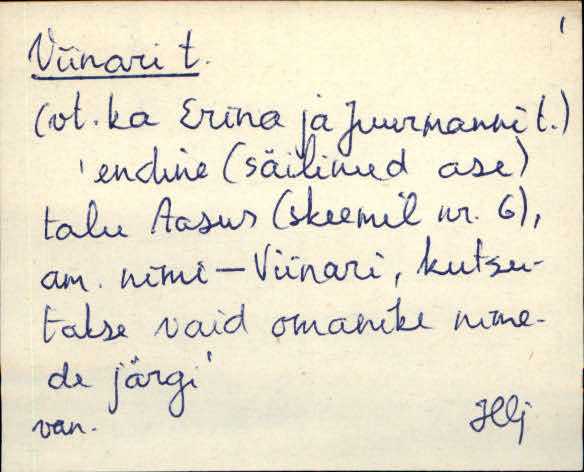 1
Viinari t.
(vt. ka Erina ja Juurmanni t.)
'endine (säilinud ase)
talu Aasus (skeemil nr. 6),
am. nimi – Viinari, kutsu-
takse vaid omanike nime-
de järgi'
van.